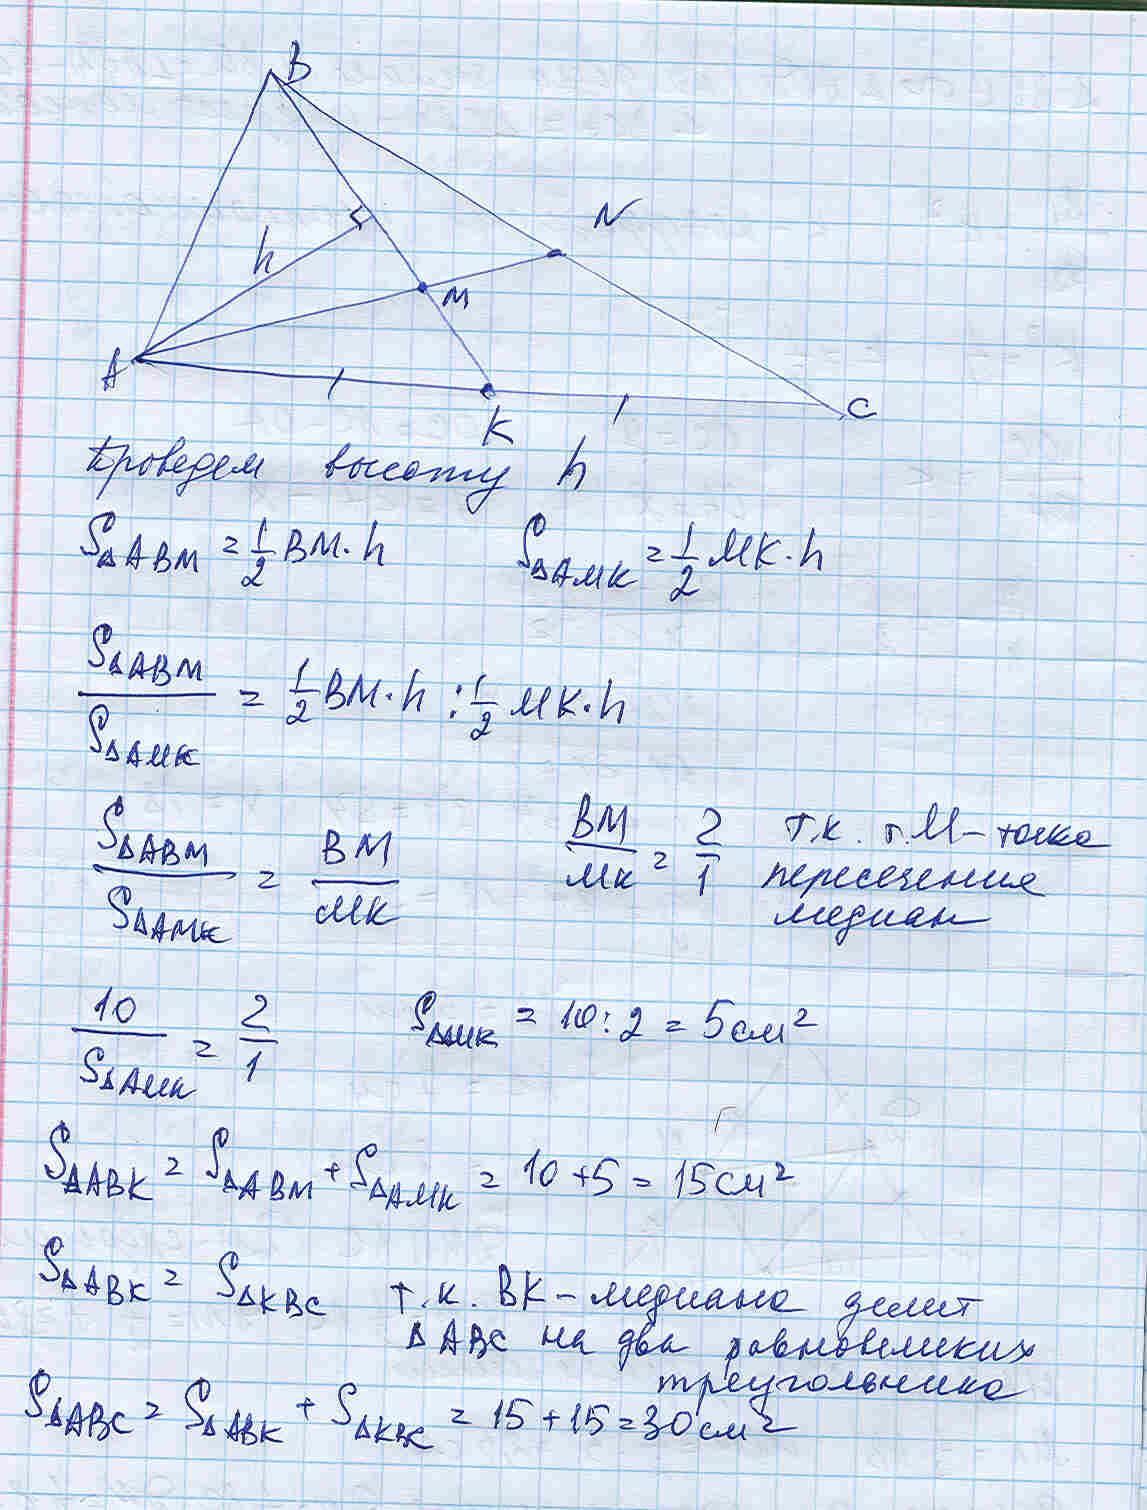 B
N
h
M
A
K
C
Проведем высоту h
S△ABM = 1/2 BM·h    S△AMK = 1/2 MK·h
S△ABM / S△AMK = 1/2 BM·h : 1/2 MK·h
S△ABM / S△AMK = BM / MK    BM / MK = 2/1    т.к. т.М – точка
пересечения
медиан
10 / S△AMK = 2/1    S△AMK = 10 : 2 = 5 см²
S△ABK = S△ABM + S△AMK = 10 + 5 = 15 см²
S△ABK = S△KBC    т.к. BK – медиана делит
△ABC на два равновеликих
треугольника
S△ABC = S△ABK + S△KBC = 15 + 15 = 30 см²